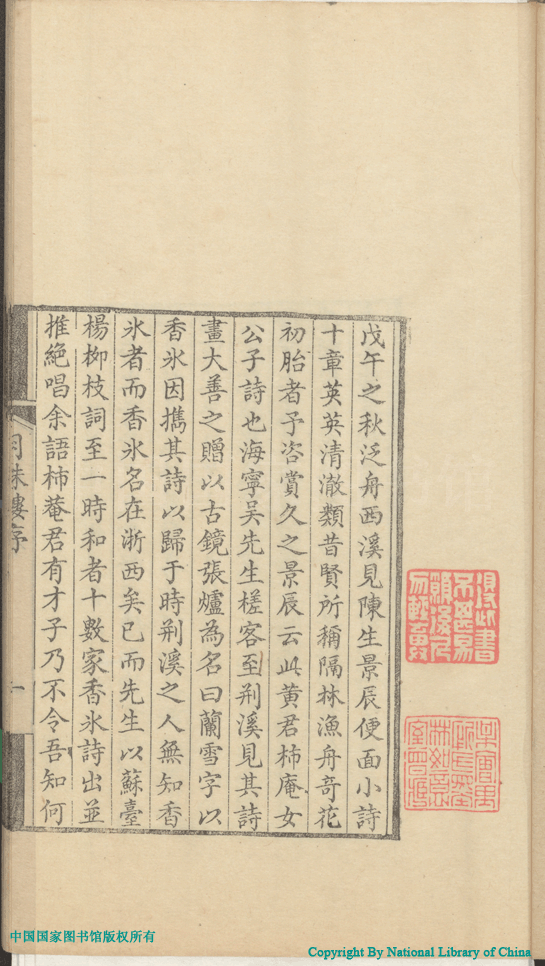 戊午之秋泛舟西溪見陳生景辰便面小詩
十章英英清澈類昔賢所稱隔林漁舟奇花
初胎者予咨賞久之景辰云此黃君柿庵女
公子詩也海寧吴先生槎客至荆溪見其詩
畫大善之贈以古鏡張爐為名曰蘭雪字以
香氷因攜其詩以歸于時荆溪之人無知香
氷者而香氷名在浙西矣已而先生以蘇臺
楊柳枝詞至一時和者十數家香氷詩出並
推絶唱余語柿菴君有才子乃不令吾知何
珠樓序
一
得此書
不甚易
願後人
勿輕棄
中国国家图书馆版权所有
Copyright By National Library of China